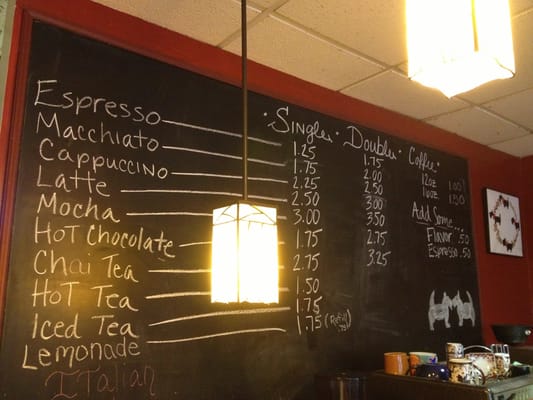 Single Double Coffee
Espresso 1.25 1.75
Macchiato 1.75 2.00
Cappuccino 2.25 2.50
Latte 2.50 3.00
Mocha 3.00 3.50
Hot Chocolate 1.75 2.75
Chai Tea 2.75 3.25
Hot Tea 1.50
Iced Tea 1.75
Lemonade 1.75 (Refill
ITalian
12oz 1.00
16oz
Add Some...
Flavor .50
Espresso .50